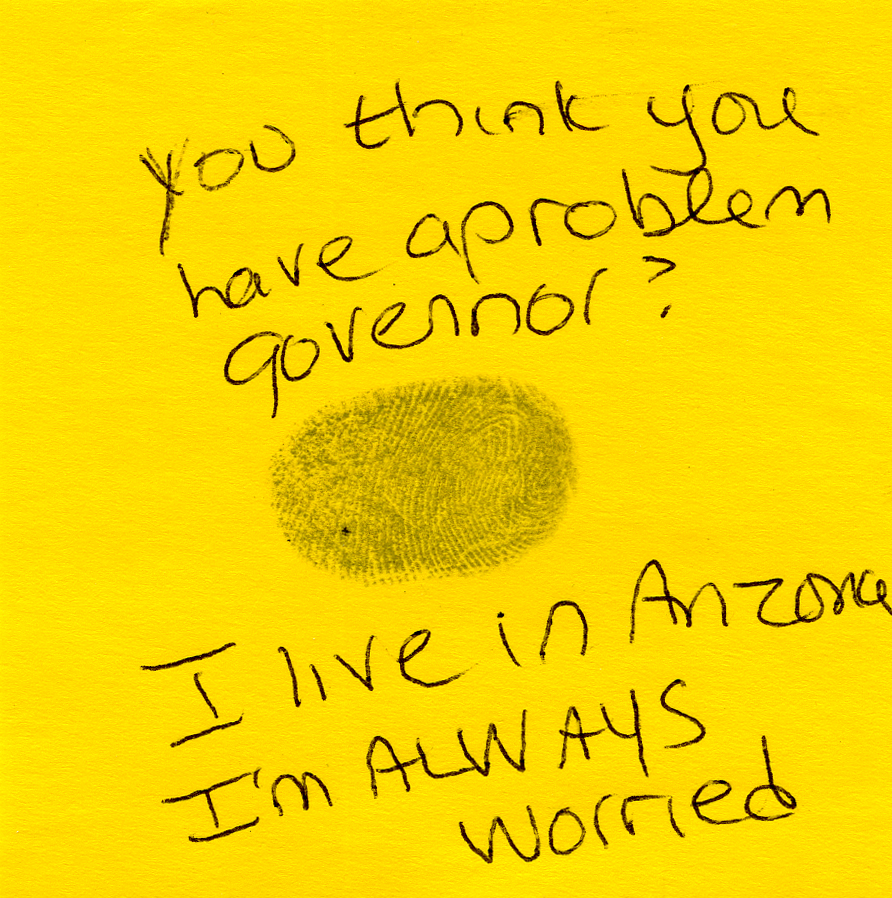 you think you
have aproblem
governor?
I live in Arizona
I'm ALWAYS
worried